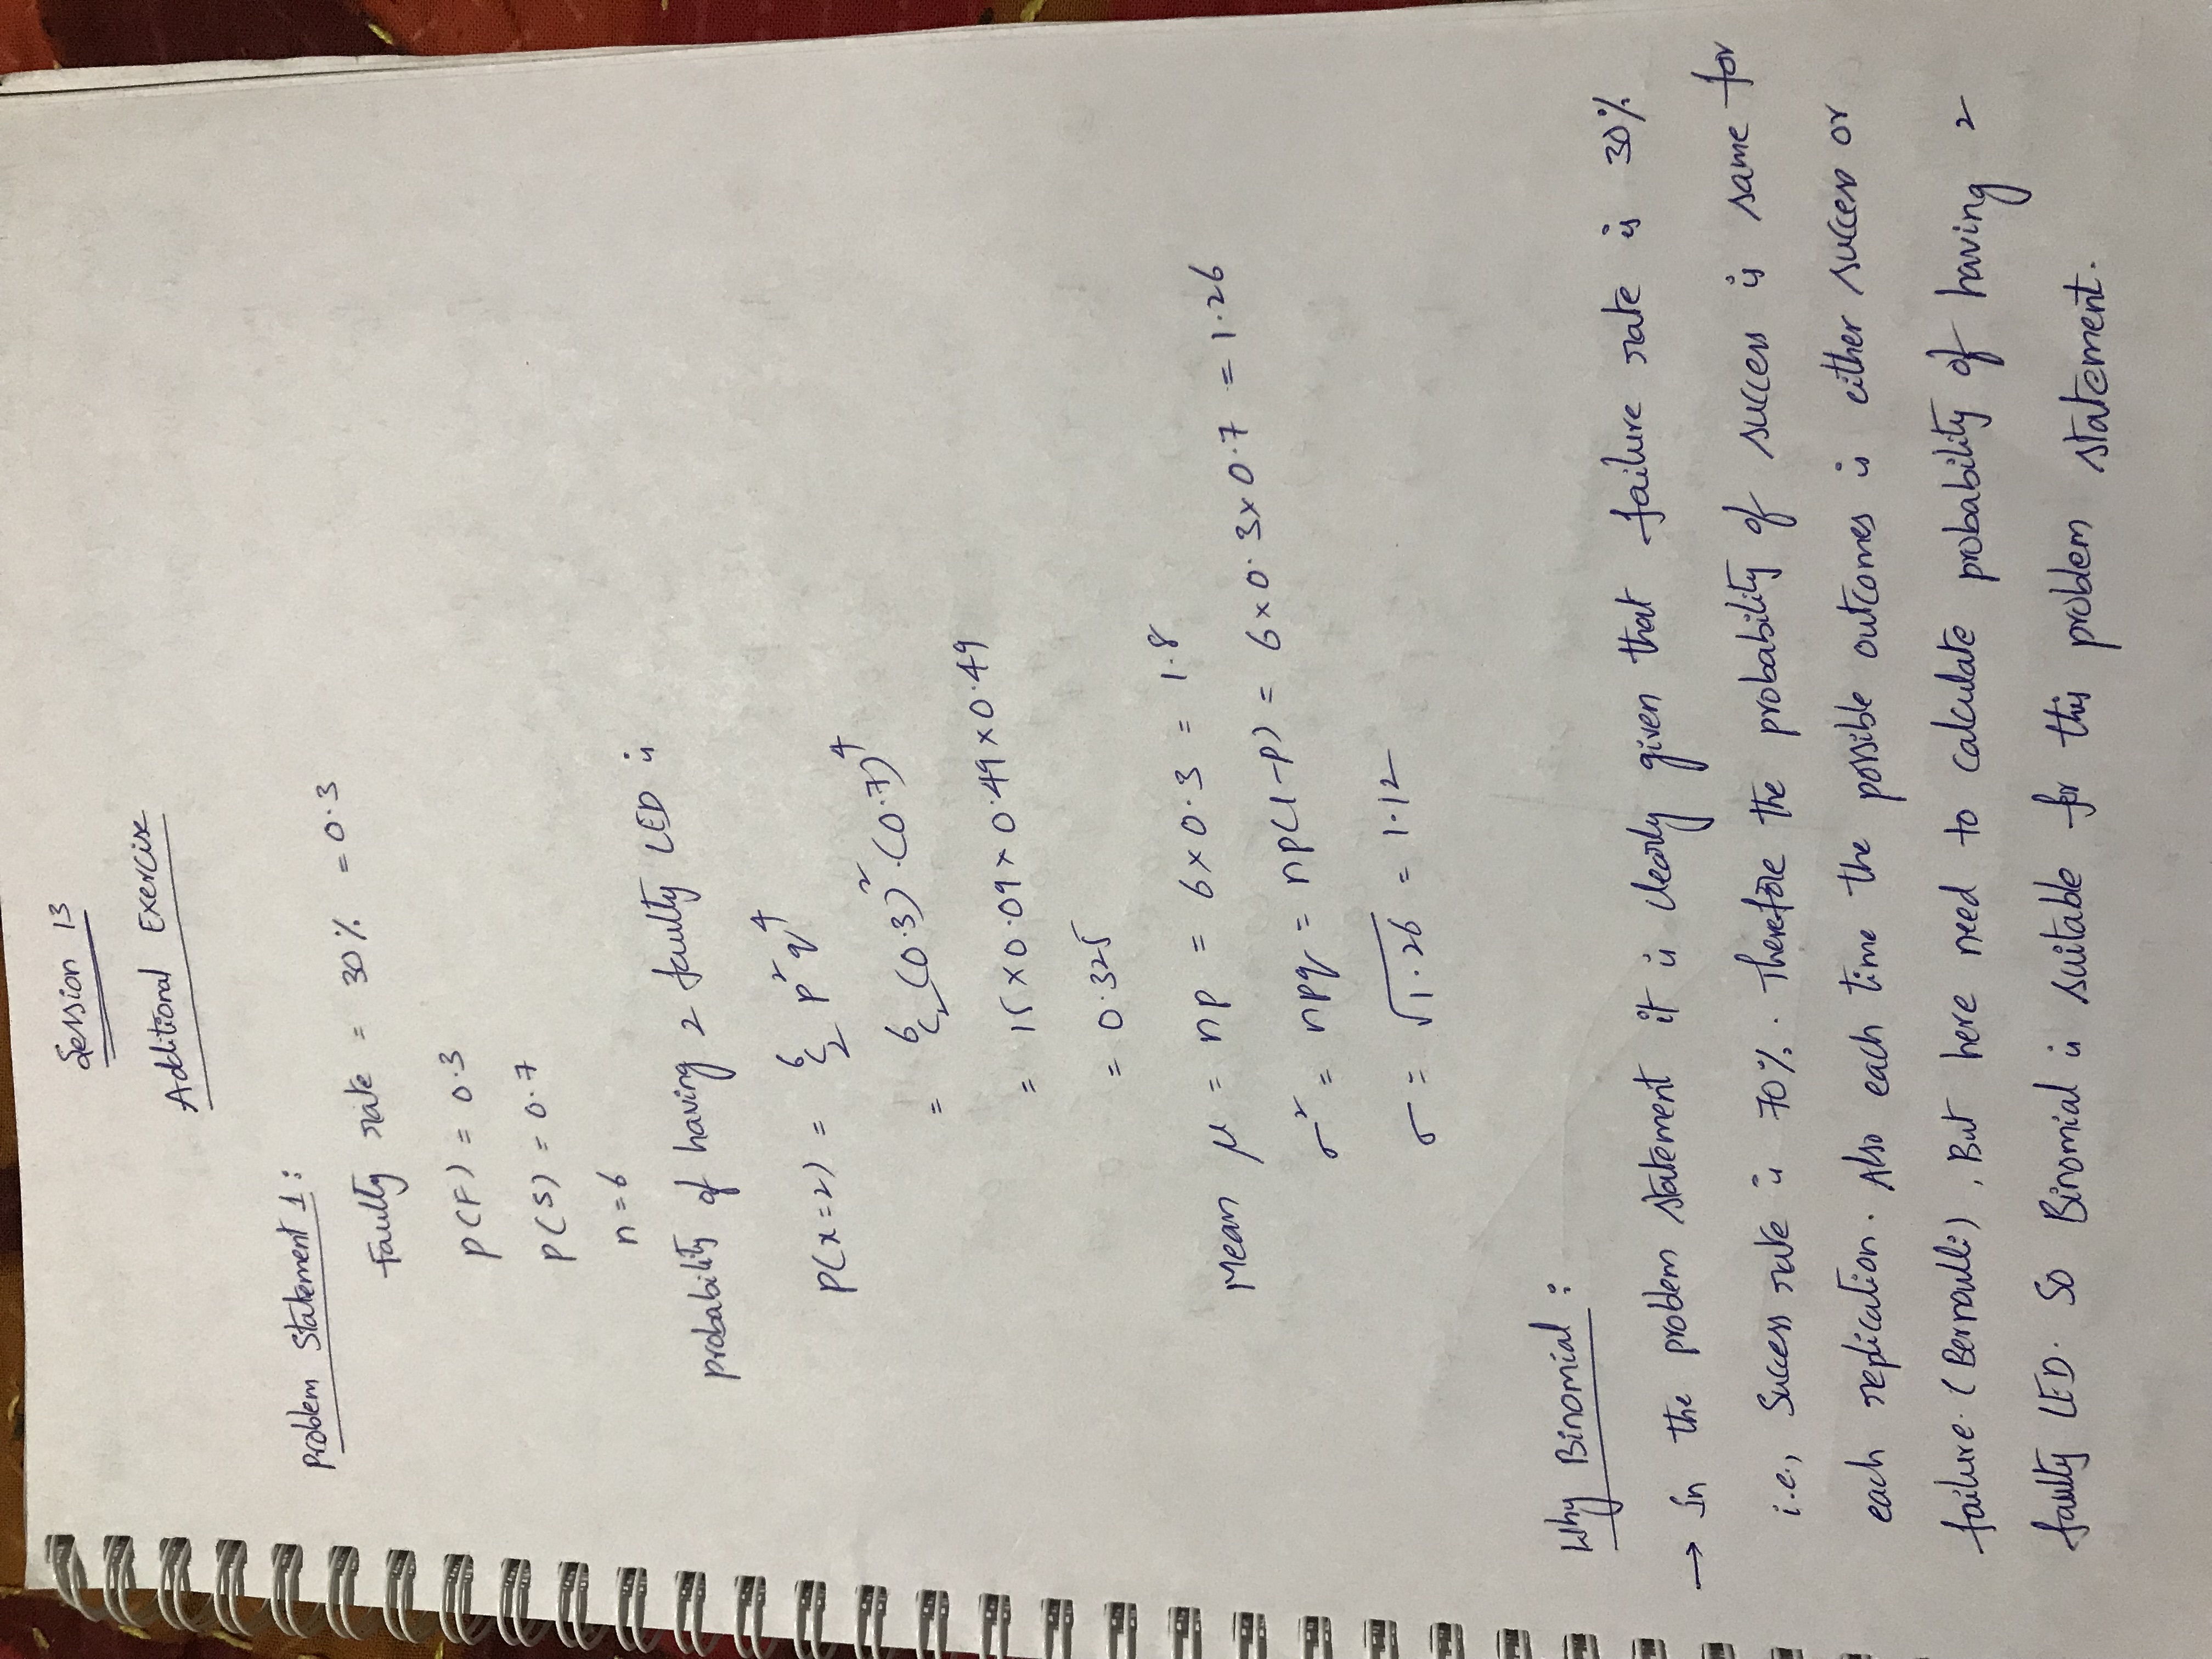 Session 13
Additional Exercise
Problem Statement 1 :
Faulty rate = 30% = 0.3
P(F) = 0.3
P(S) = 0.7
n = 6
Probability of having 2 faulty LED is
P(x=2) = ⁶C₂ p² q⁴
= ⁶C₂ (0.3)² . (0.7)⁴
= 15 × 0.09 × 0.49 × 0.49
= 0.325
Mean μ = np = 6 × 0.3 = 1.8
σ² = npq = np(1-p) = 6 × 0.3 × 0.7 = 1.26
σ = √1.26 = 1.12
Why Binomial :
→ In the problem statement it is clearly given that failure rate is 30%
i.e., Success rate is 70%. Therefore the probability of success is same for
each replication. Also each time the possible outcomes is either success or
failure. (Bernoulli), But here need to calculate probability of having 2
faulty LED. So Binomial is suitable for this problem statement.